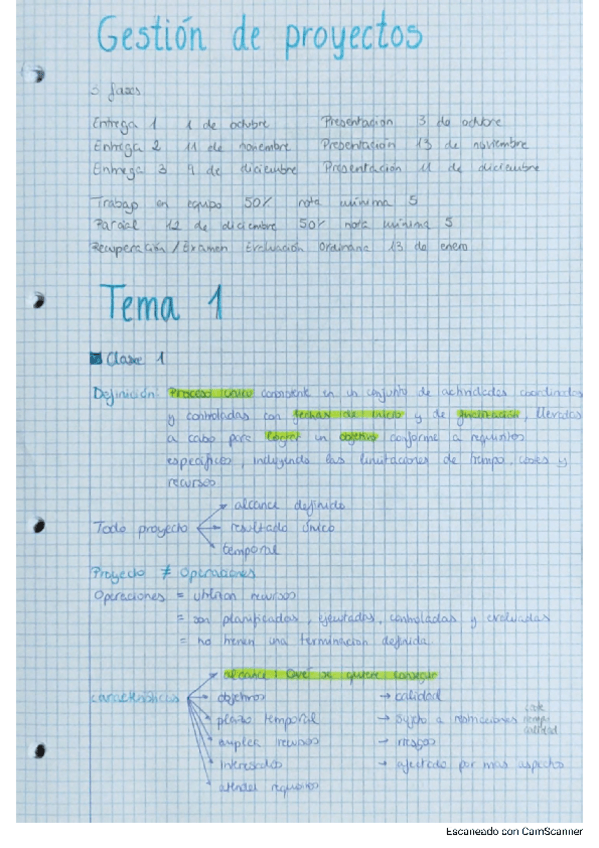 Gestión de proyectos
3 fases
Entrega 1 1 de octubre Presentación 3 de octubre
Entrega 2 11 de noviembre Presentación 13 de noviembre
Entrega 3 9 de diciembre Presentación 11 de diciembre
Trabajo en equipo 50% nota mínima 5
Parcial 12 de diciembre 50% nota mínima 5
Recuperación / Examen Evaluación Ordinaria 13 de enero
Tema 1
Clase 1
Definición: Proceso único consistente en un conjunto de actividades coordinadas
y controladas con fechas de inicio y de finalización, llevadas
a cabo para lograr un objetivo conforme a requisitos
específicos, incluyendo las limitaciones de tiempo, costes y
recursos
alcance definido
Todo proyecto resultado único
temporal
Proyecto ≠ Operaciones
Operaciones = utilizan recursos
= son planificadas, ejecutadas, controladas y evaluadas
= no tienen una terminación definida
alcance: Qué se quiere conseguir
características objetivos → calidad
plazo temporal → sujeto a restricciones coste tiempo calidad
emplea recursos → riesgos
interesados → afectado por más aspectos
atender requisitos
Escaneado con CamScanner